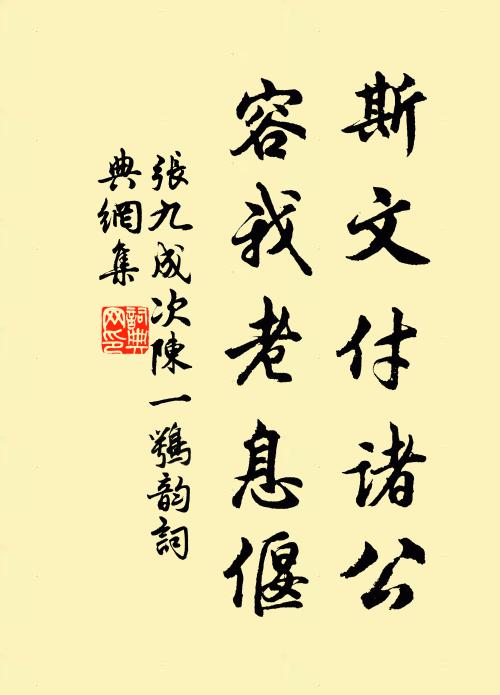 斯文付诸公
容我老息偃
張九成次陳一鶚韵詞
典網集
詞典
网印